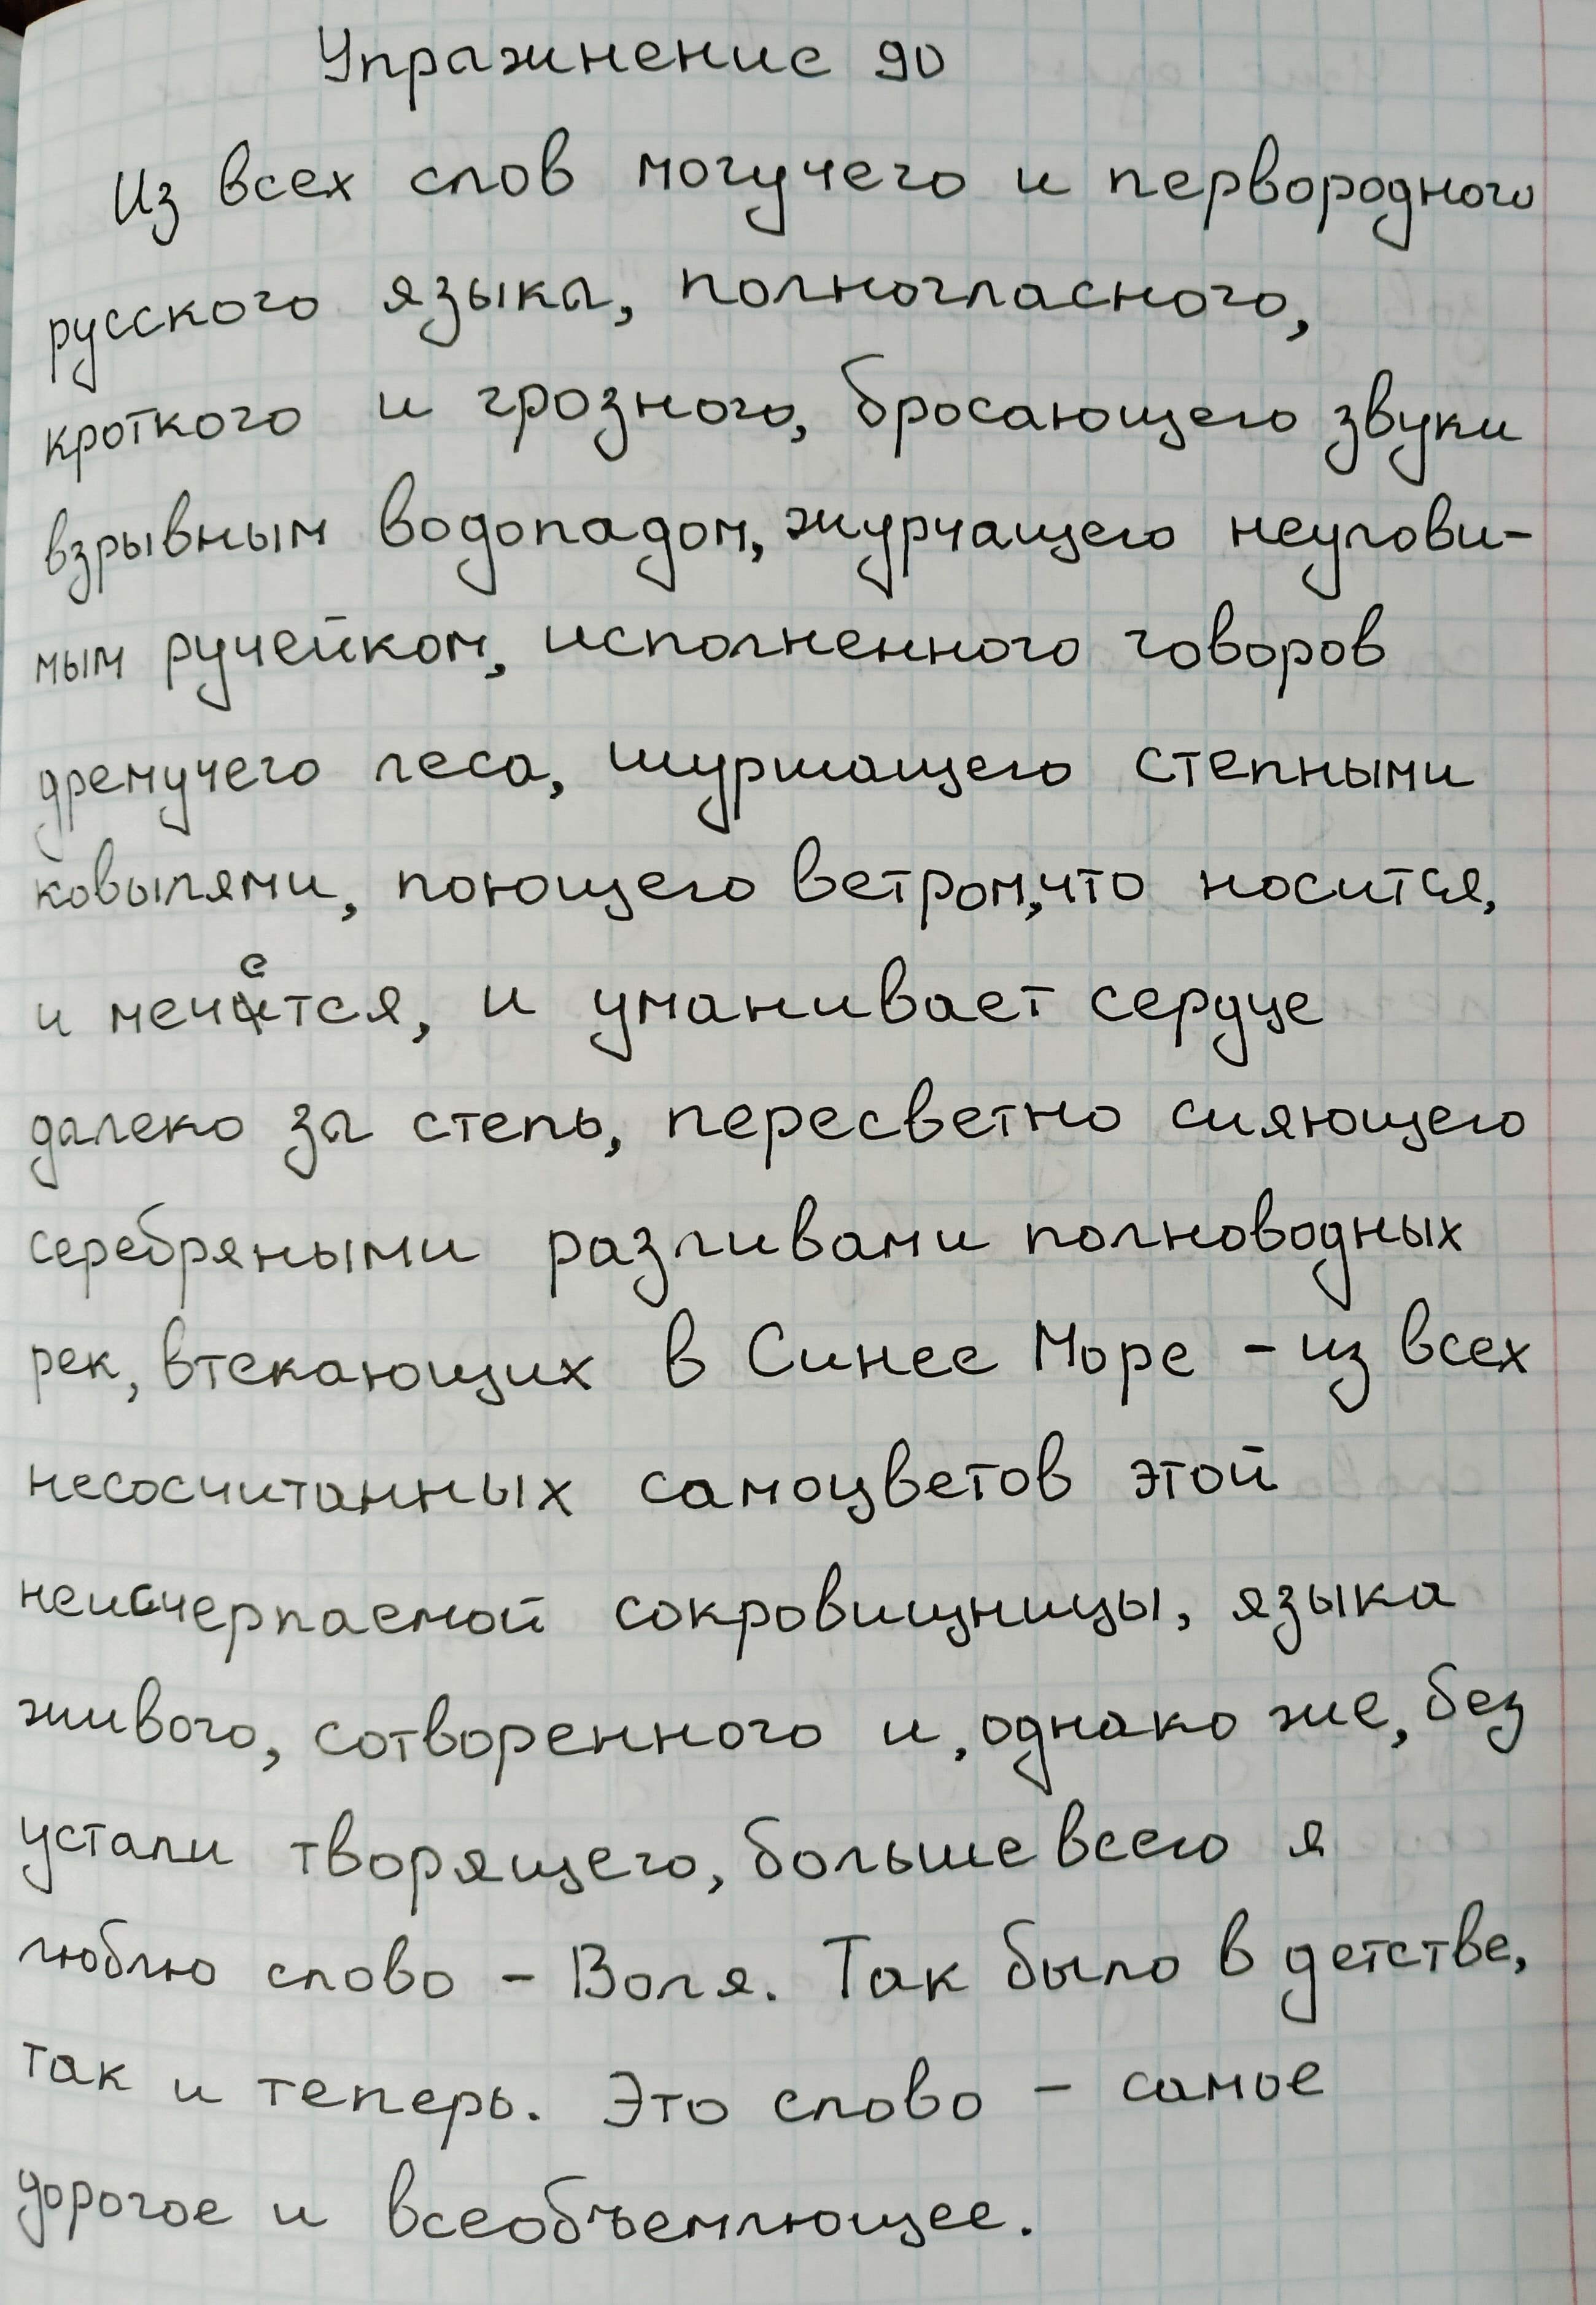 Упражнение 90
Из всех слов могучего и первородного
русского языка, полногласного,
кроткого и грозного, бросающего звуки
взрывным водопадом, журчащего неулови-
мым ручейком, исполненного говоров
дремучего леса, шуршащего степными
ковылями, поющего ветром, что носится,
и мечется, и уманивает сердце
далеко за степь, пересветно сияющего
серебряными разливами полноводных
рек, втекающих в Синее Море - из всех
несосчитанных самоцветов этой
неисчерпаемой сокровищницы, языка
живого, сотворенного и, однако же, без
устали творящего, больше всего я
люблю слово - Воля. Так было в детстве,
так и теперь. Это слово - самое
дорогое и всеобъемлющее.